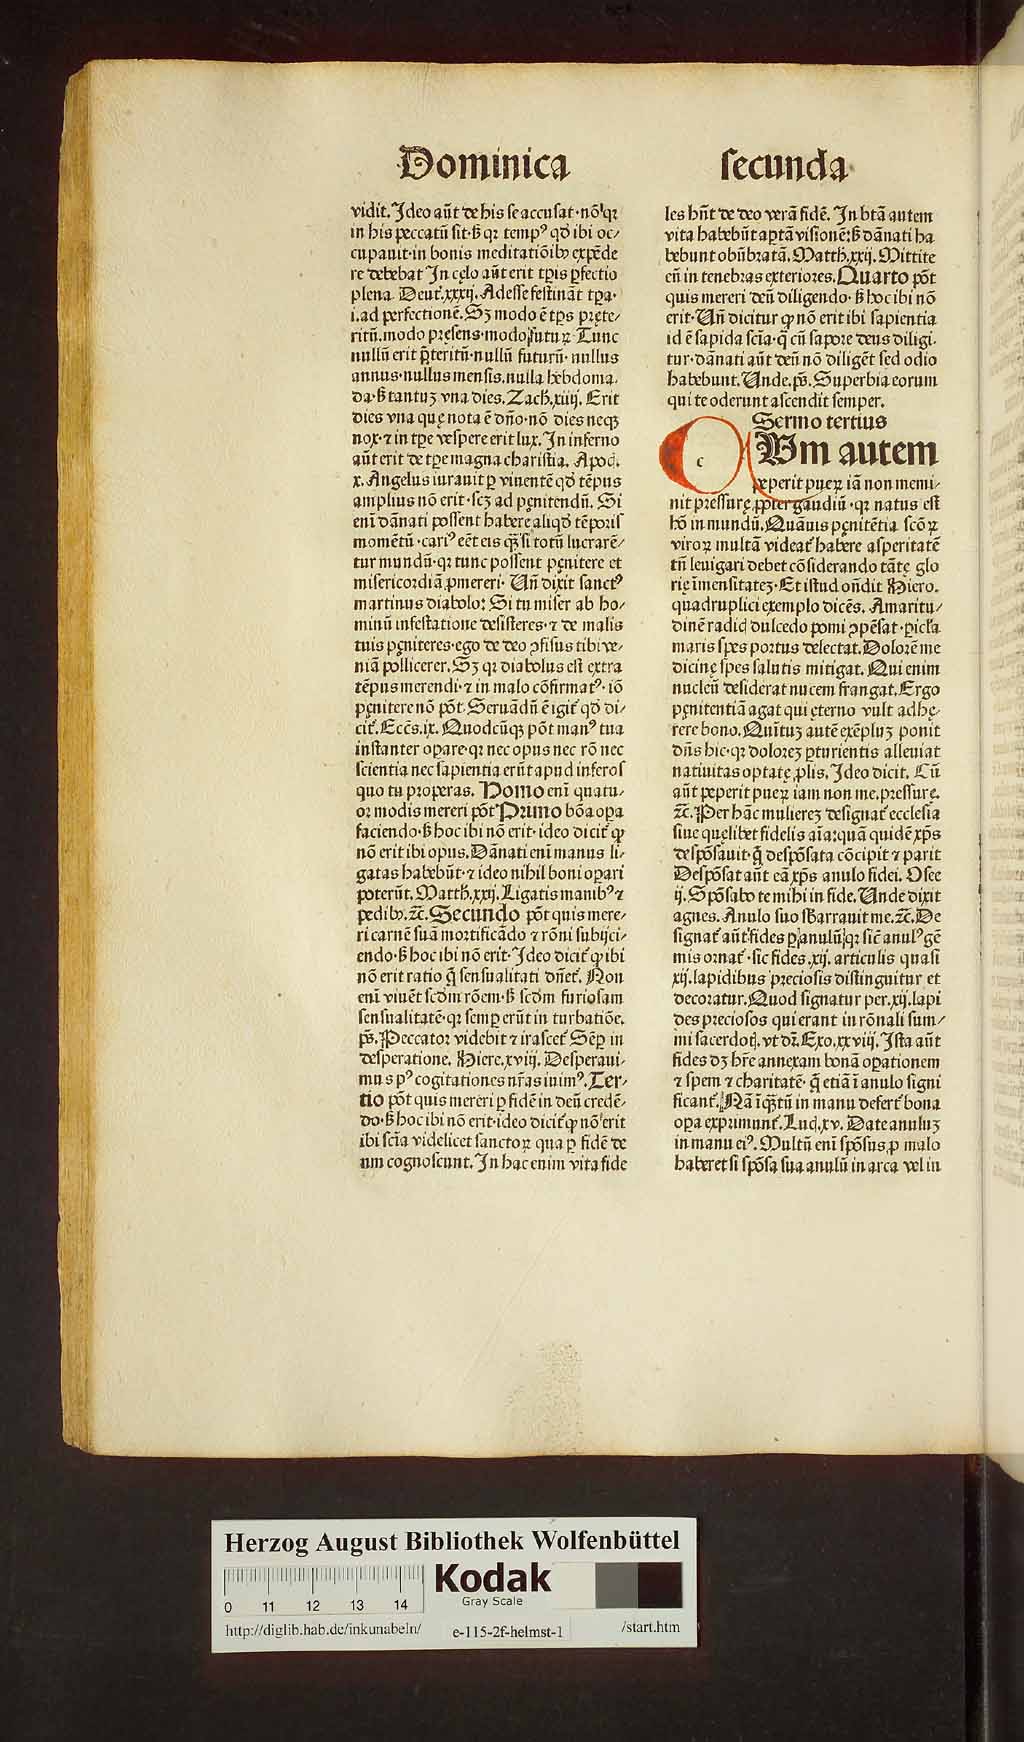 Dominica secunda
vidit. Ideo aūt de his se accusat·nō qꝛ
in his peccatū sit·ß qꝛ tempꝰ qđ ibi oc⸗
cupauit·in bonis meditatiōibꝫ expēde
re debebat In cęlo aūt erit tꝑis ꝑfectio
plena. Deut̄.xxxij. Adesse festināt tꝑa·
i.ad perfectionē. Sꝫ modo ē tꝑs pręte⸗
ritū.modo pręsens·modo futuꝝ· Tunc
nullū erit p̄teritū·nullū futurū· nullus
annus·nullus mensis.nulla hebdoma.
da·ß tantuꝫ vna dies. Zach̄.xiiij. Erit
dies vna quę nota ē dn̄o·nō dies neqꝫ
nox·⁊ in tꝑe vespere erit lux. In inferno
aūt erit de tꝑe magna charistia. Apoc̄.
x. Angelus iurauit ꝑ viuentē qđ tēpus
amplius nō erit·scꝫ ad pęnitendū. Si
enī dānati possent habere aliqđ tēporis
momētū·cariꝰ eēt eis qꝫ̄ si totū lucrarē⸗
tur mundū·qꝛ tunc possent pęnitere et
misericordiā ꝓmereri· Uñ dixit sanctꝰ
martinus diabolo: Si tu miser ab ho⸗
minū infestatione desisteres·⁊ de malis
tuis pęniteres·ego de deo ꝯfisus tibi ve⸗
niā pollicerer. Sꝫ qꝛ diabolus est extra
tēpus merendi·⁊ in malo cōfirmatꝰ·iō
pęnitere nō pōt. Seruādū ē igit̄ qđ di⸗
cit̄. Eccs̄.ix. Quodcūqꝫ pōt manꝰ tua
instanter oꝑare·qꝛ nec opus nec rō nec
scientia nec sapientia erūt apud inferos
quo tu properas. Homo enī quatu⸗
or modis mereri pōt· Primo bōa oꝑa
faciendo·ß hoc ibi nō erit·ideo dicit̄ ꝙ
nō erit ibi opus. Dānati enī manus li⸗
gatas habebūt·⁊ ideo nihil boni oꝑari
poterūt. Matth̄.xxij. Ligatis manibꝰ ⁊
pedibꝫ. ⁊c̄. Secundo pōt quis mere⸗
ri carnē suā mortificādo ⁊ rōni subijci⸗
endo·ß hoc ibi nō erit· Ideo dicit̄ ꝙ ibi
nō erit ratio q̄ sensualitati dn̄et̄. Non
enī viuēt scđm rōem·ß scđm furiosam
sensualitatē·qꝛ semꝑ erūt in turbatiōe.
ps̄. Peccator videbit ⁊ irascet̄ Sēꝑ in
desperatione. Hiere.xviij. Desperaui⸗
mus pꝰ cogitationes nr̄as iuimꝰ. Ter⸗
tio pōt quis mereri ꝑ fidē in deū credē⸗
do·ß hoc ibi nō erit·ideo dicit̄ ꝙ nō erit
ibi scīa videlicet sanctoꝝ qua ꝑ fidē de
um cognoscunt. In hac enim vita fide
les hn̄t de deo verā fidē. In btā autem
vita habebūt aꝑtā visionē:ß dānati ha
bebunt obūbratā. Matth̄.xxij. Mittite
eū in tenebras exteriores. Quarto pōt
quis mereri deū diligendo·ß hoc ibi nō
erit· Uñ dicitur ꝙ nō erit ibi sapientia
id ē sapida scīa·q̄ cū sapore deus diligi.
tur·dānati aūt deū nō diligēt sed odio
habebunt. Unde.ps̄. Superbia eorum
qui te oderunt ascendit semper.
Sermo tertius
c Um autem
peperit pueꝝ iā non memi⸗
nit pressurę ꝓpter gaudiū·qꝛ natus est
hō in mundū. Quāuis pęnitētia scōꝝ
viroꝝ multā videat̄ habere asperitatē
tn̄ leuigari debet cōsiderando tātę glo
rię īmensitateꝫ· Et istud on̄dit Hiero.
quadruplici exemplo dicēs. Amaritu⸗
dinē radiē dulcedo pomi ꝯpēsat·ꝑicl̄a
maris spes portus delectat. Dolorē me
dicinę spes salutis mitigat. Qui enim
nucleū desiderat nucem frangat. Ergo
pęnitentiā agat qui ęterno vult adhę⸗
rere bono. Quītuꝫ autē exēpluꝫ ponit
dn̄s hic·qꝛ doloreꝫ ꝑturientis alleuiat
natiuitas optatę ꝓlis. Ideo dicit. Cū
aūt peperit pueꝝ iam non me.pressurę.
⁊c̄. Per hāc muliereꝫ designat̄ ecclesia
siue quęlibet fidelis aīa:quā quidē xp̄s
despōsauit·q̄ despōsata cōcipit ⁊ parit
Despōsat aūt eā xp̄s anulo fidei. Osee
ij. Spōsabo te mihi in fide. Unde dixit
agnes. Anulo suo sßarrauit me. ⁊c̄. De
signat̄ aūt fides ꝑ anulū qꝛ sic̄ anulꝰ gē
mis ornat̄·sic fides.xij. articulis quasi
xij.lapidibus preciosis distinguitur et
decoratur. Quod signatur per.xij.lapi
des preciosos qui erant in rōnali sum⸗
mi sacerdotꝭ. vt dꝛ̄. Exo.xxviij. Ista aūt
fides dꝫ hr̄e annexam bonā oꝑationem
⁊ spem ⁊ charitatē·q̄ etiā ī anulo signi
ficant̄. Nā īqꝫ̄tū in manu defert̄ bona
oꝑa exprimunt̄. Luc̄.xv. Date anuluꝫ
in manu eiꝰ. Multū enī spōsus ꝓ malo
haberet si spōsa sua anulū in arca vel in
Herzog August Bibliothek Wolfenbüttel
0 11 12 13 14
Kodak
Gray Scale
http://diglib.hab.de/inkunabeln/ e-115-2f-helmst-1 /start.htm